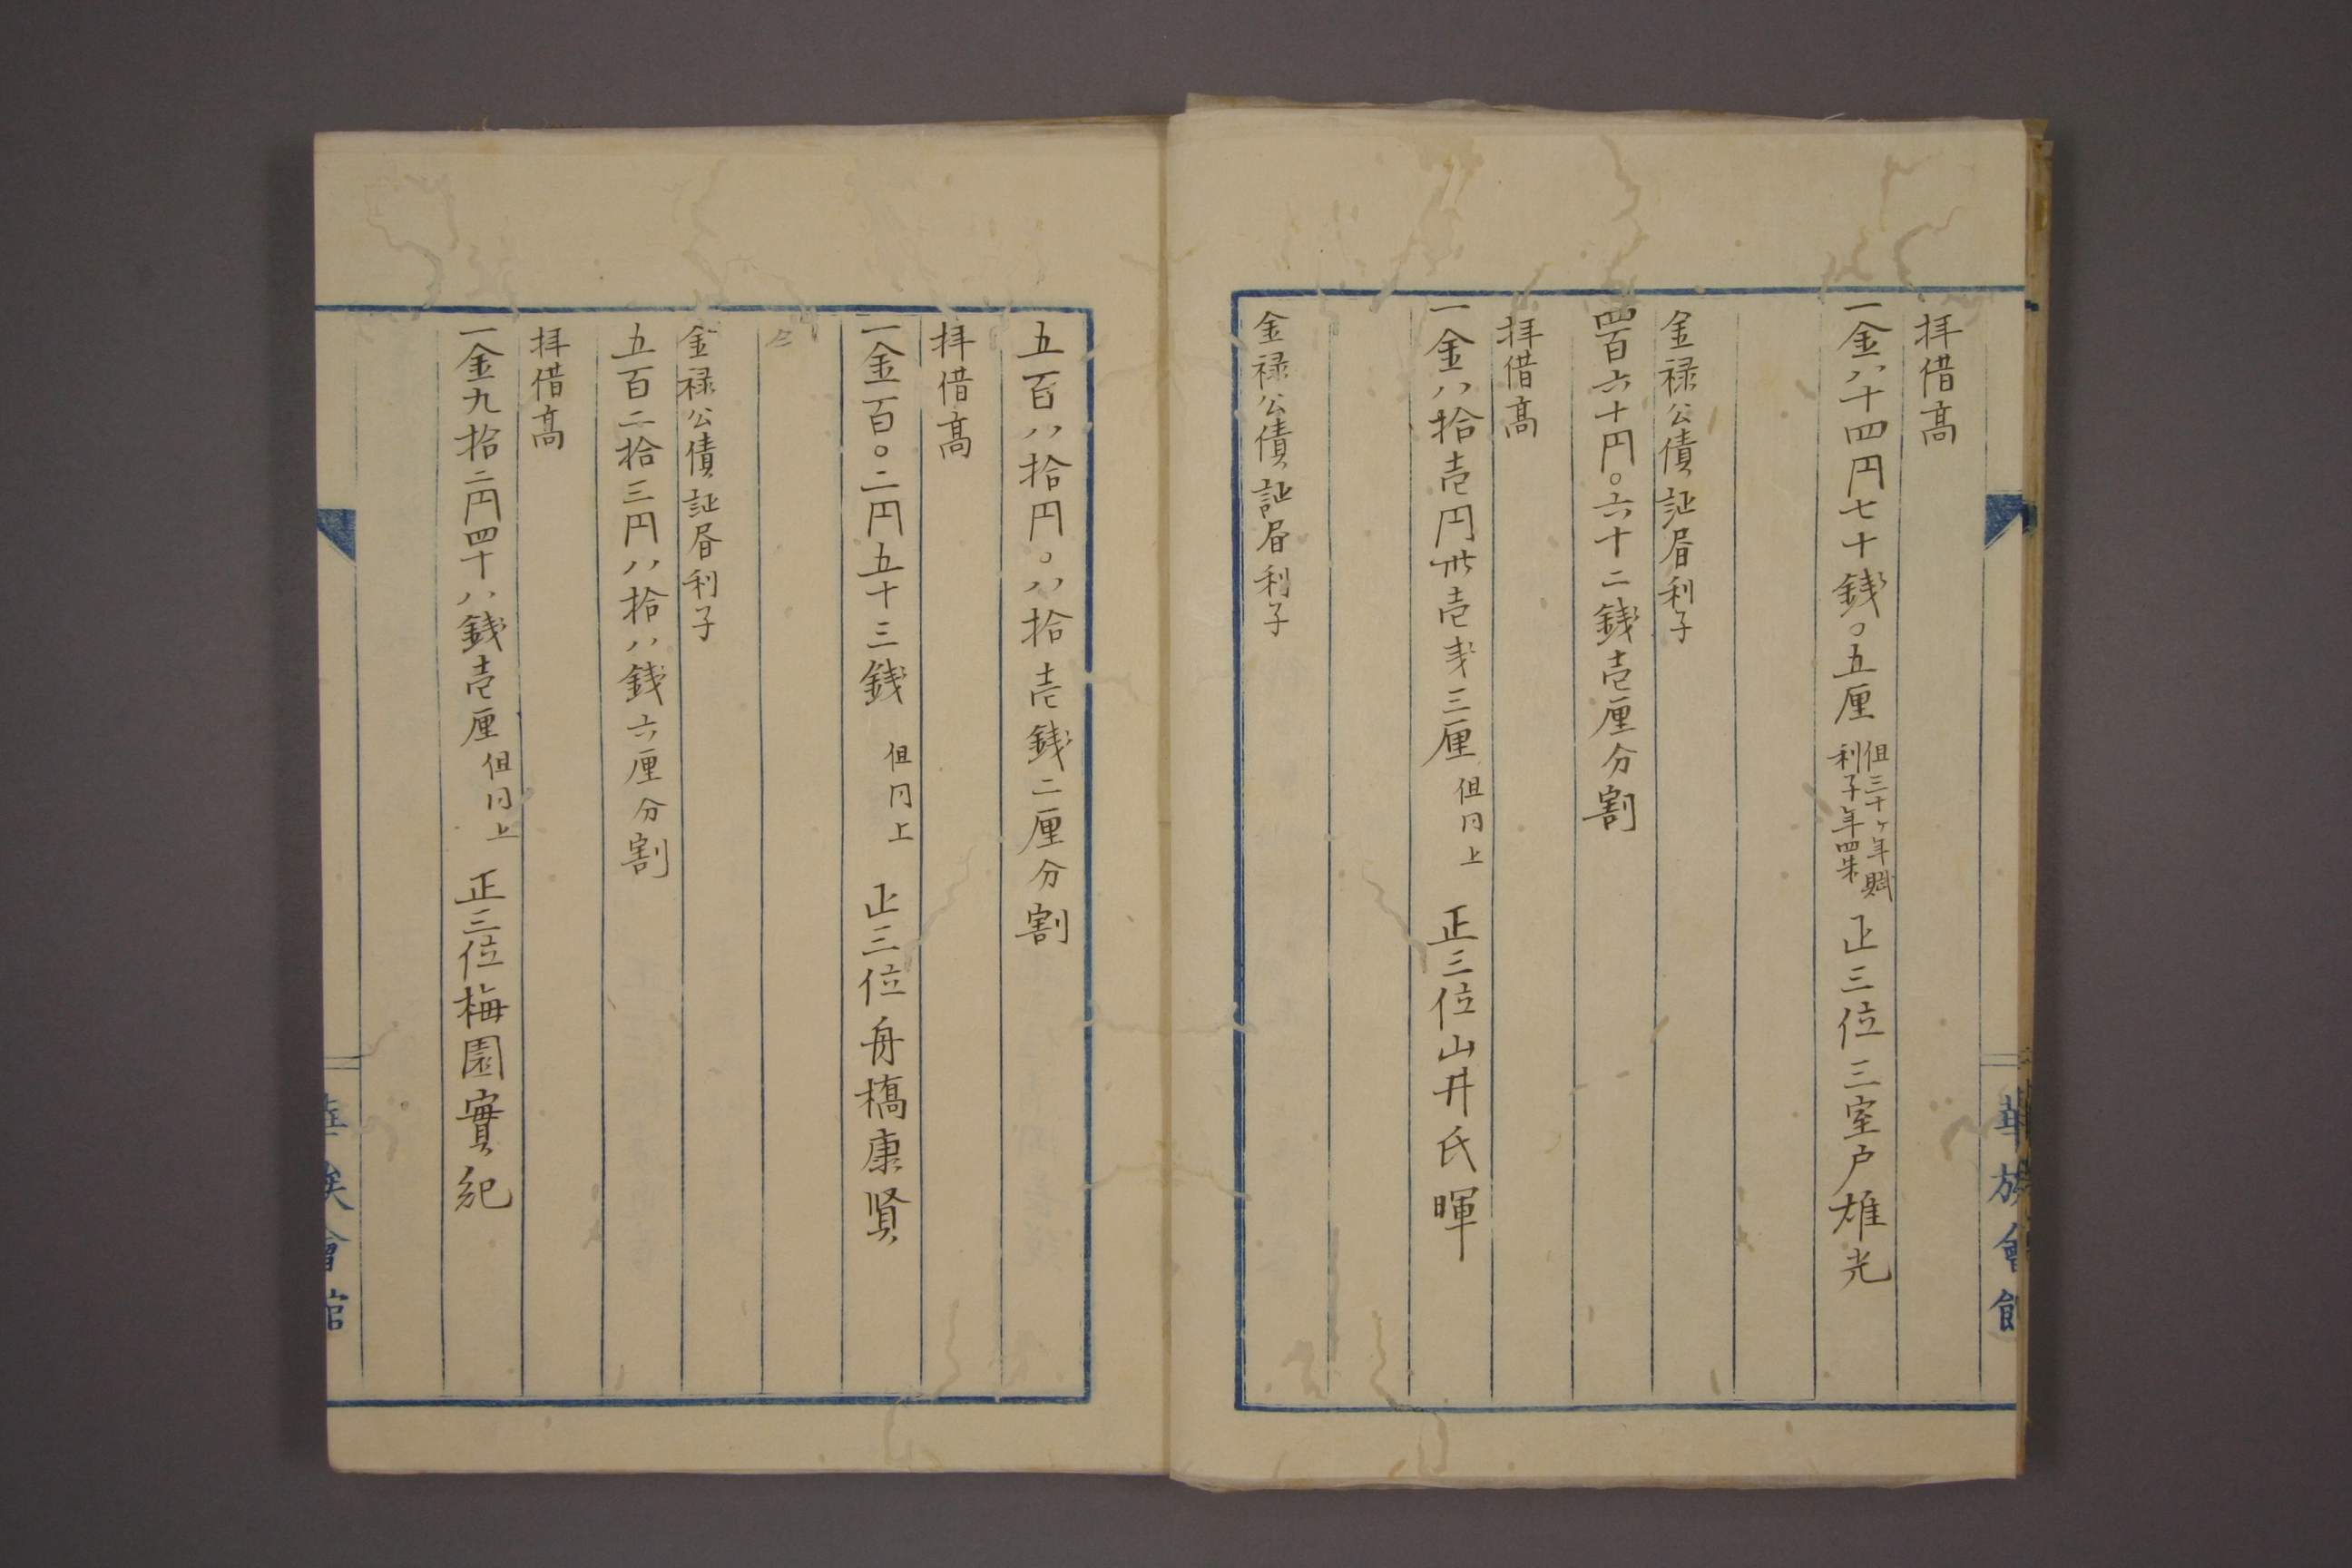 拝借髙
一金八十四円七十銭〇五厘 但三十ヶ年賦利子年四朱 正三位三室戸雄光
金禄公債証書利子
四百六十円〇六十二銭壱厘分割
拝借髙
一金八拾壱円卅壱戔三厘 但同上 正三位山井氏暉
金禄公債証書利子
華族會館
五百八拾円〇八拾壱銭二厘分割
拝借髙
一金百〇二円五十三銭 但同上 正三位舟橋康賢
金禄公債証書利子
五百二拾三円八拾八銭六厘分割
拝借髙
一金九拾二円四十八銭壱厘 但同上 正三位梅園實紀
華族會館